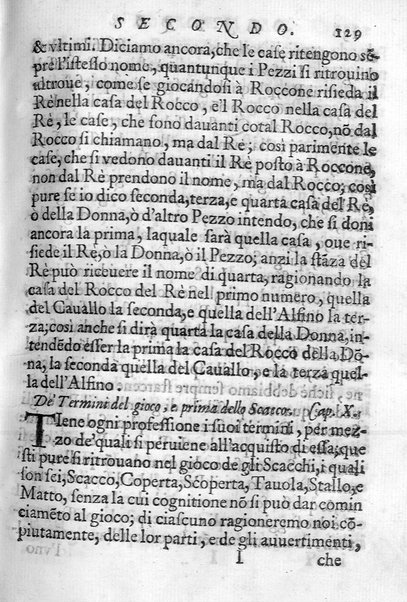 SECONDO. 129
& vltimi. Diciamo ancora, che le case ritengono sē
pre l'istesso nome, quantunque i Pezzi si ritrouino
altroue; come se giocandosi à Roccone risieda il
Rè nella casa del Rocco, e'l Rocco nella casa del
Rè, le case, che sono dauanti cotal Rocco, nō dal
Rocco si chiamano, ma dal Rè; così parimente le
case, che si vedono dauanti il Rè posto à Roccone,
non dal Rè prendono il nome, ma dal Rocco; così
pure se io dico seconda, terza, e quarta casa del Rè,
ò della Donna, ò d'altro Pezzo intendo, che si doni
ancora la prima, laquale sarà quella casa, oue ri-
siede il Rè, ò la Donna, ò il Pezzo; anzi la stāza del
Rè può riceuere il nome di quarta, ragionando la
casa del Rocco del Rè nel primo numero, quella
del Cauallo la seconda, e quella dell'Alfino la ter-
za; così anche si dirà quarta la casa della Donna, in-
tendēdo esser la prima la casa del Rocco della Dō-
na, la seconda quella del Cauallo, e la terza quel-
la dell'Alfino.
De' Termini del gioco, e prima dello Scacco. Cap. X.
Tiene ogni professione i suoi termini, per mez-
zo de' quali si peruiene all'acquisto di essa; que
isti pure si ritrouano nel giòco de gli Scacchi, i quali
son sei, Scacco, Coperta, Scoperta, Tauola, Stallo, e
Matto, senza la cui cognitione nō si può dar comin
ciamēto al gioco; di ciascuno ragioneremo noi cō-
piutamente, delle lor parti, e de gli auuertimenti,
I che